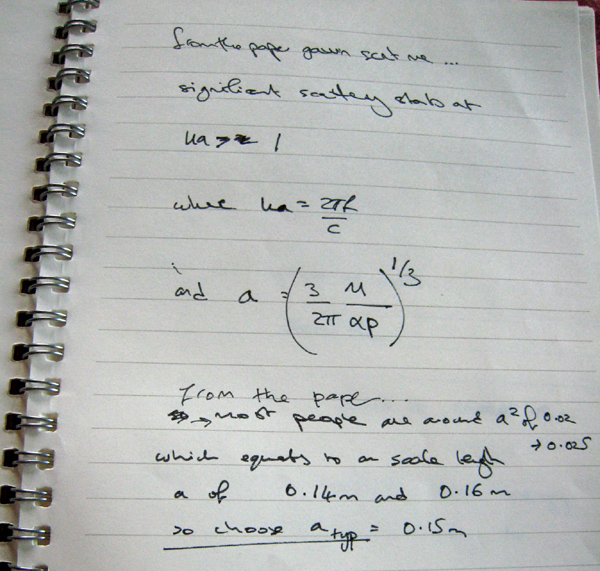 from the paper gavin sent me ...
significant scattering starts at
ka >≈ 1
where ka = 2πf / c
and a = (3/2π M/αρ)^1/3
from the paper...
→ most people are around a² of 0.02
→ 0.025
which equates to a scale length
a of 0.14m and 0.16m
so choose a typ = 0.15m